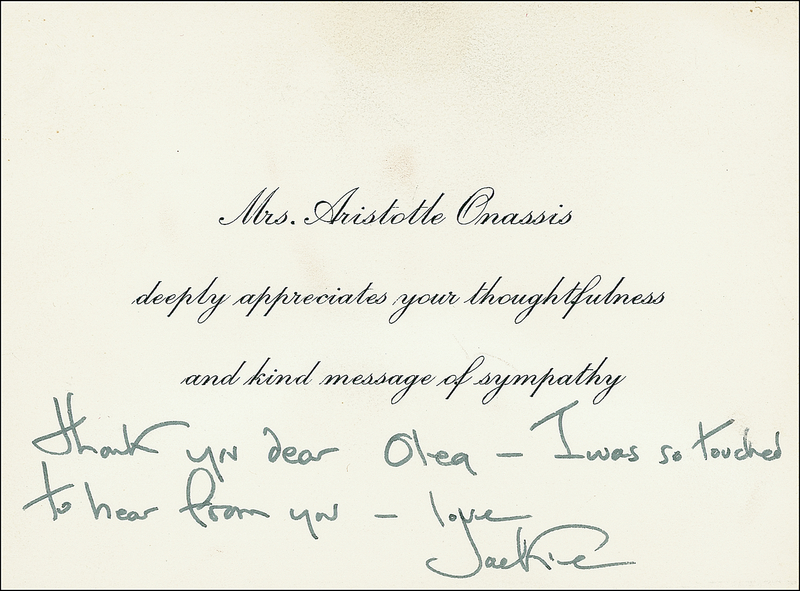 Mrs. Aristotle Onassis
deeply appreciates your thoughtfulness
and kind message of sympathy
Thank you dear Oleg – I was so touched
to hear from you – love
Jackie